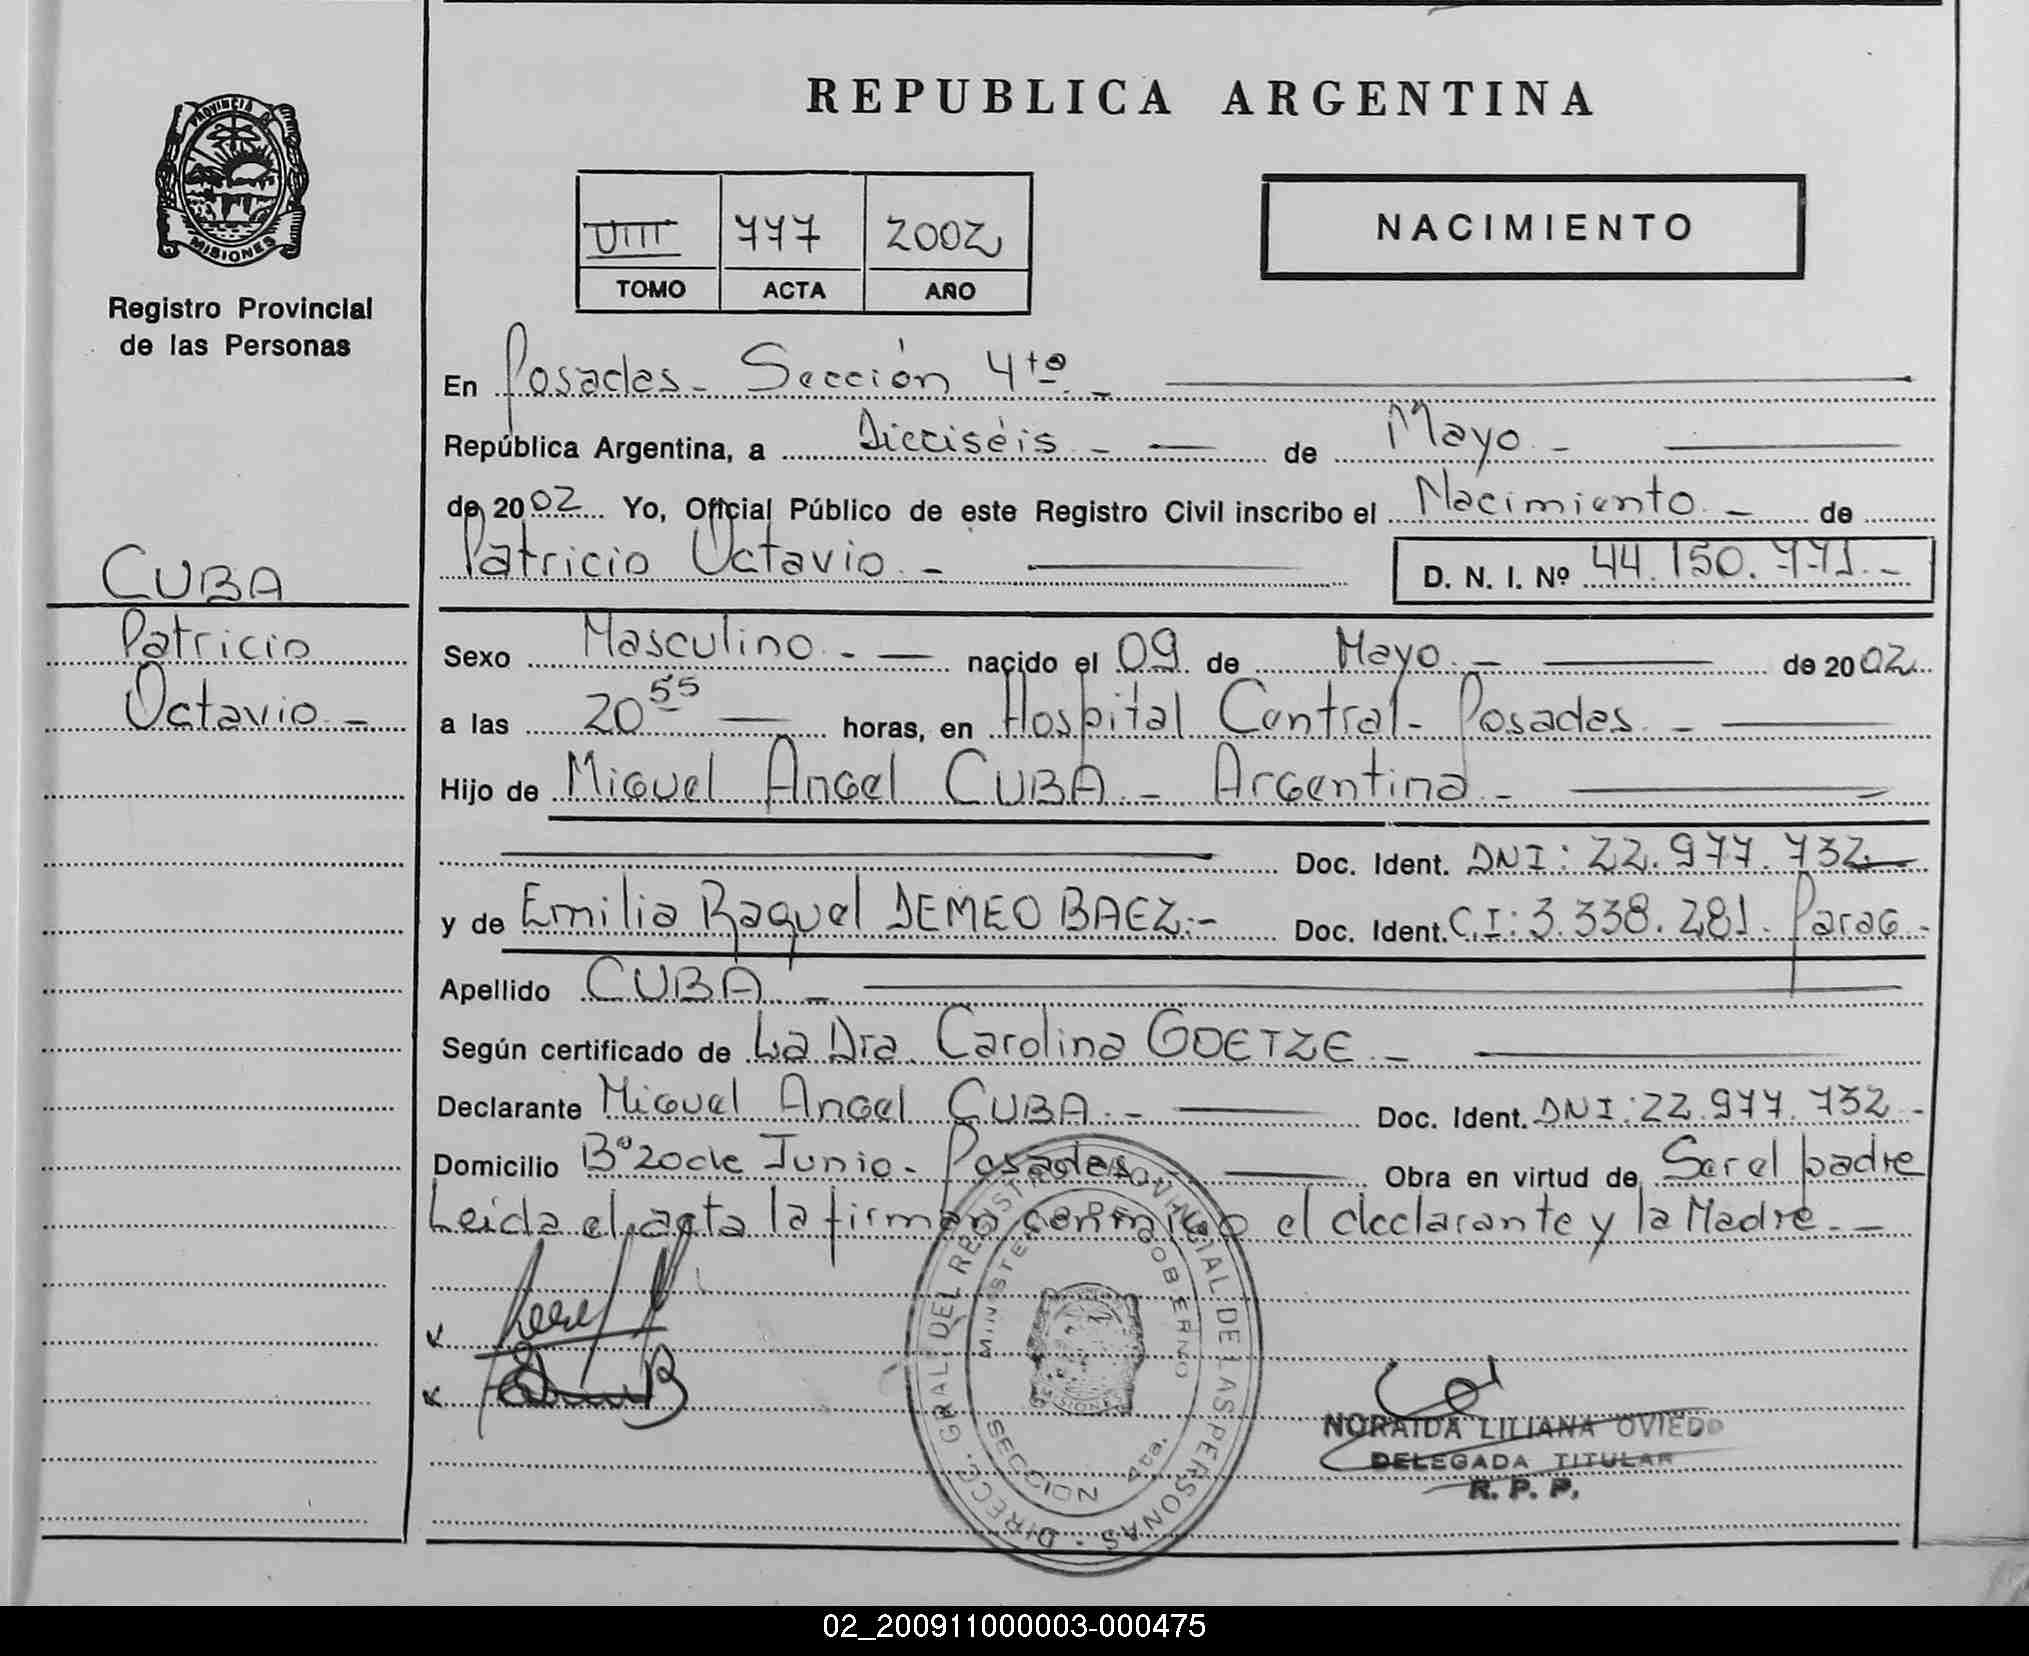 PROVINCIA DE
MISIONES
Registro Provincial
de las Personas
CUBA
Patricio
Octavio.-
REPUBLICA ARGENTINA
VIII 777 2002
TOMO ACTA AÑO
NACIMIENTO
En Posadas- Sección 4ta.-
República Argentina, a Dieciséis.- de Mayo.-
de 2002 Yo, Oficial Público de este Registro Civil inscribo el Nacimiento.- de
Patricio Octavio.- D. N. I. Nº 44.150.771.-
Sexo Masculino.- nacido el 09 de Mayo.- de 2002
a las 20 55 horas, en Hospital Central- Posadas.-
Hijo de Miguel Angel CUBA.- Argentina.-
Doc. Ident. DNI: 22.977.732.-
y de Emilia Raquel DEMEO BAEZ.- Doc. Ident. C.I: 3.338.281. Parag.-
Apellido CUBA.-
Según certificado de La Dra. Carolina GOETZE.-
Declarante Miguel Angel CUBA.- Doc. Ident. DNI: 22.977.732.-
Domicilio Bº 20 de Junio.- Posadas.- Obra en virtud de Ser el padre
Leída el acta la firman conmigo el declarante y la Madre.-
DIRECC. GRAL DEL REGISTRO PROVINCIAL DE LAS PERSONAS
MINISTERIO GOBIERNO
SECCION 4ta.
NORAIDA LILIANA OVIEDO
DELEGADA TITULAR
R. P. P.
02_200911000003-000475